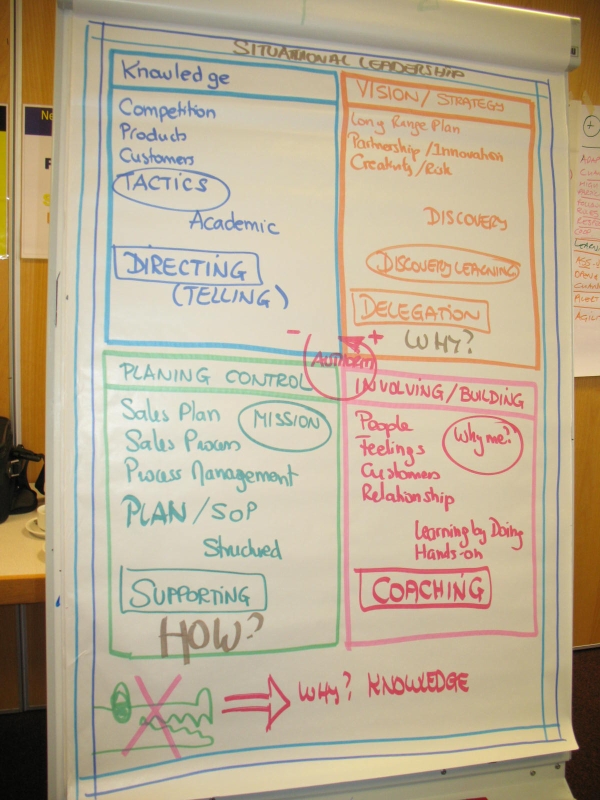 SITUATIONAL LEADERSHIP
Knowledge
Competition
Products
Customers
TACTICS
Academic
DIRECTING
(TELLING)
VISION/STRATEGY
Long Range Plan
Partnership/Innovation
Creativity/Risk
DISCOVERY
DISCOVERY LEARNING
DELEGATION
WHY?
- +
PLANING CONTROL
Sales Plan
MISSION
Sales Process
Process Management
PLAN/SOP
Structured
SUPPORTING
HOW?
INVOLVING/BUILDING
People
Why me?
Feelings
Customers
Relationship
Learning by Doing
Hands-on
COACHING
WHY? KNOWLEDGE
Ne
+